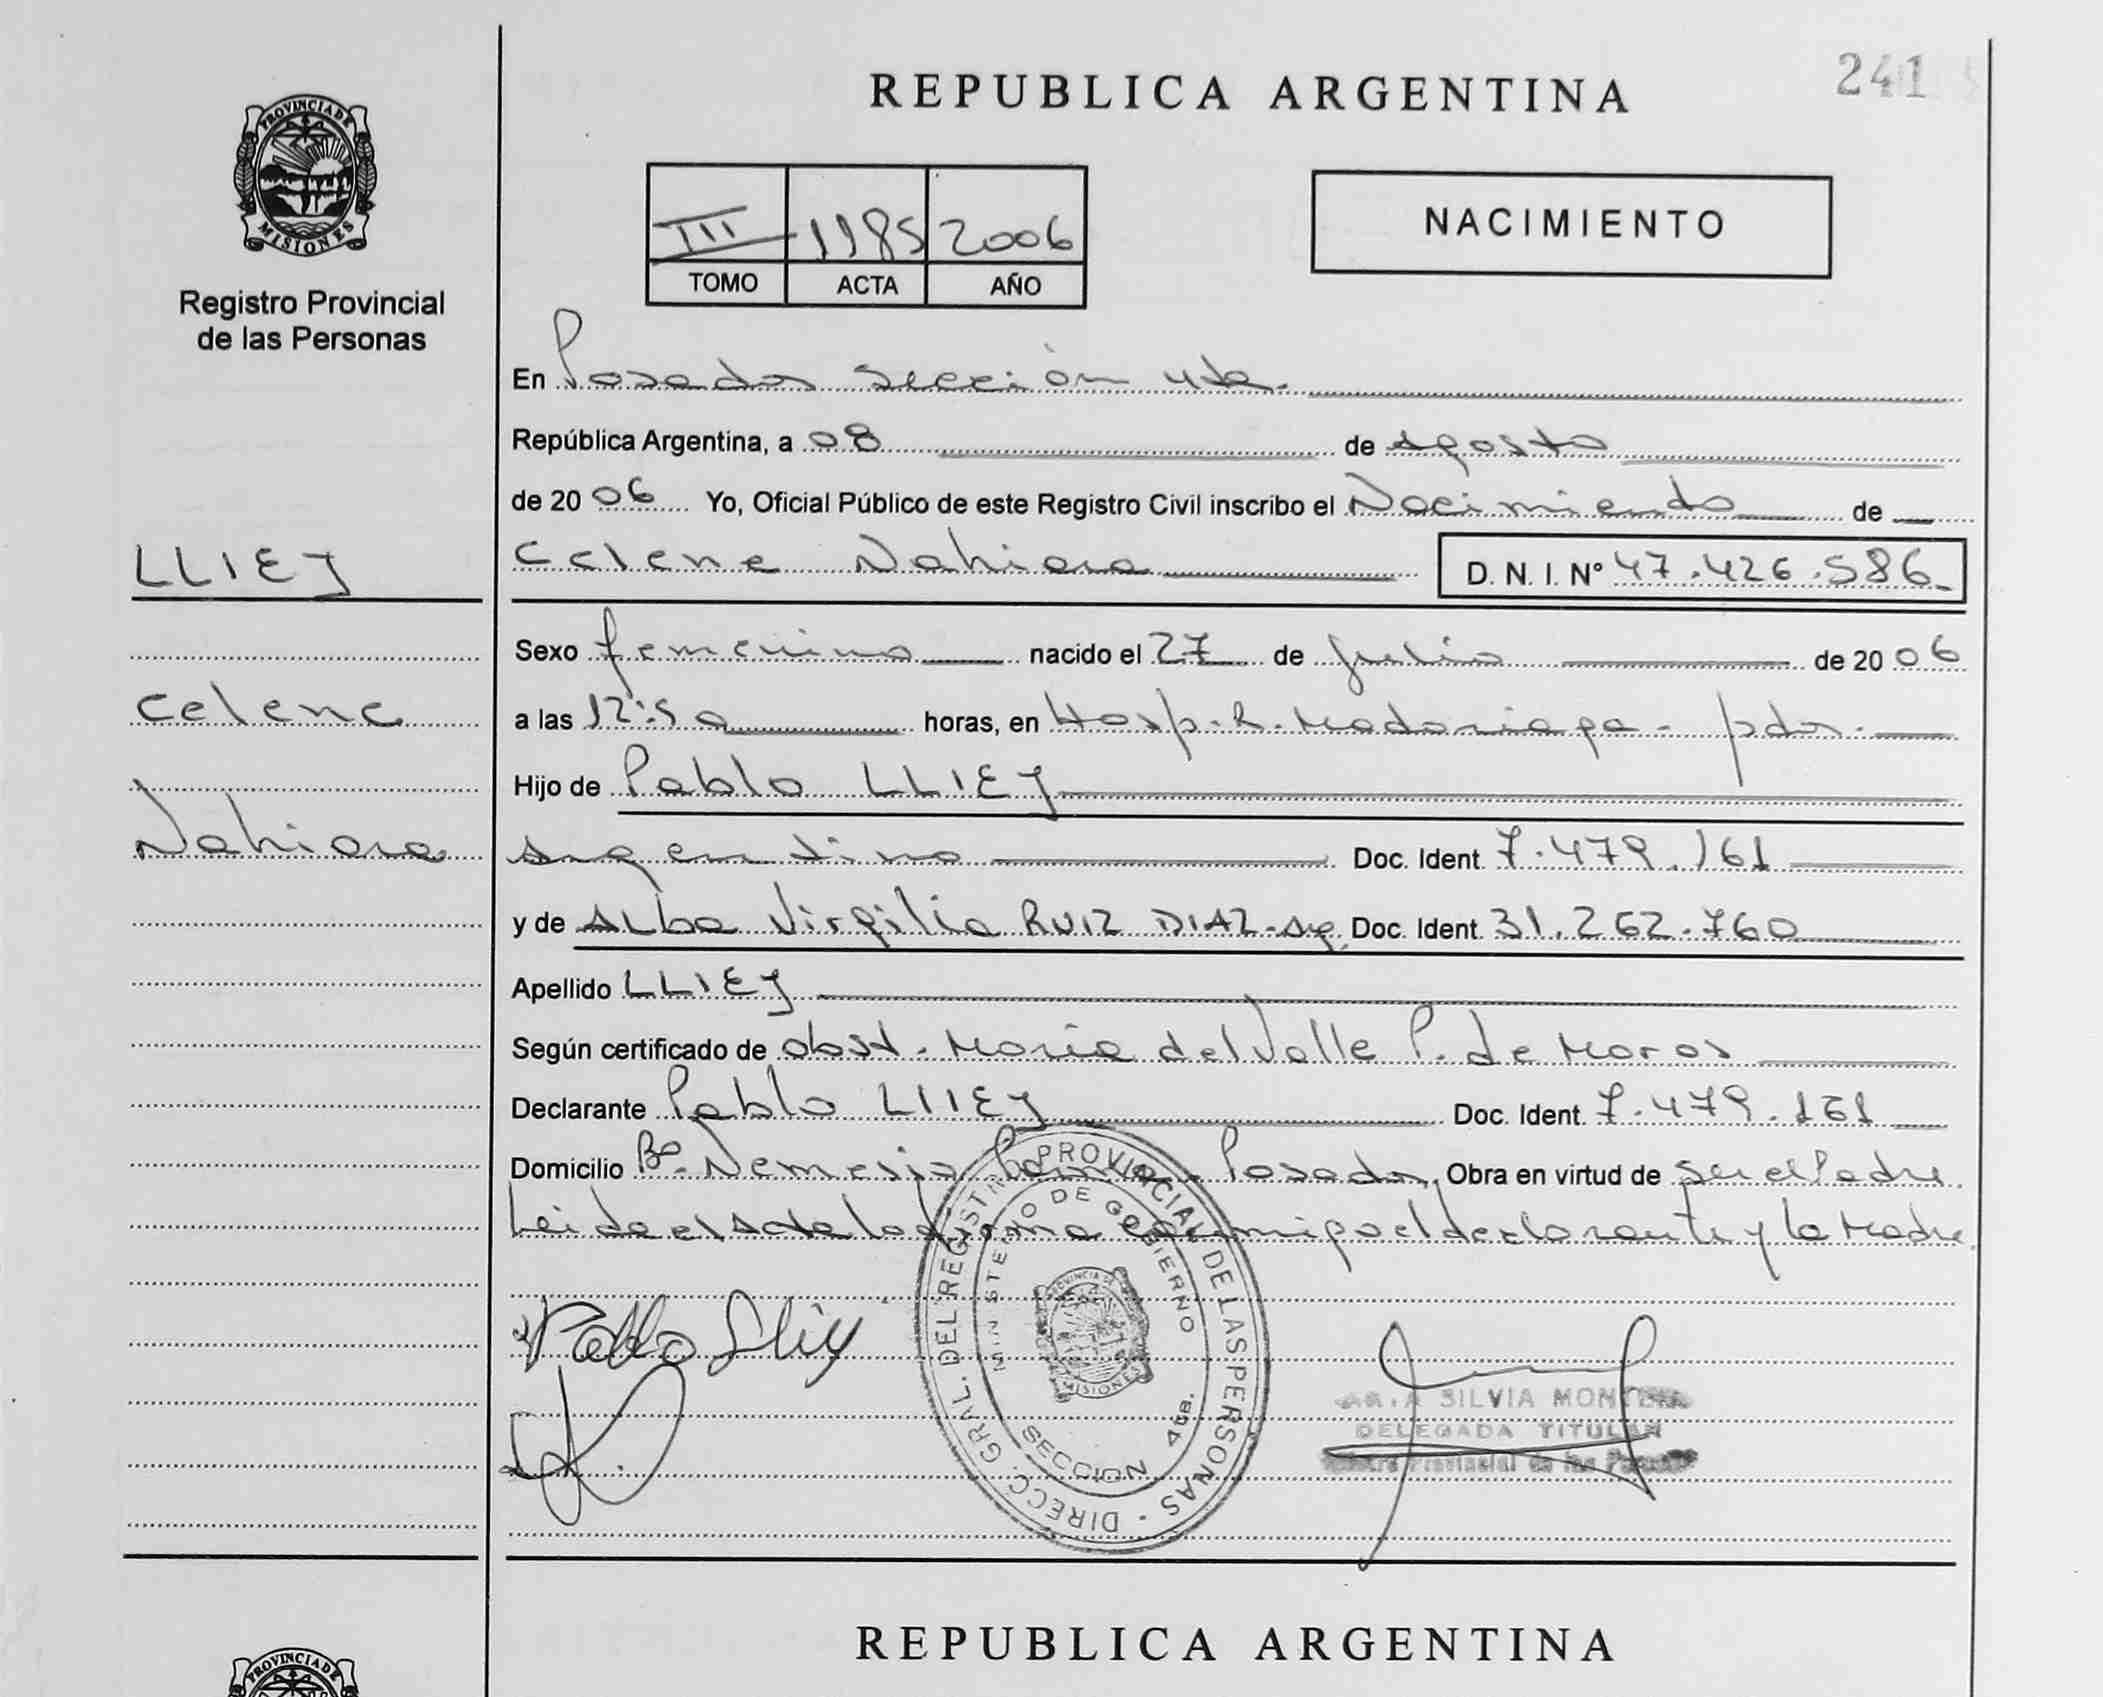 241
REPUBLICA ARGENTINA
PROVINCIA DE
MISIONES
Registro Provincial
de las Personas
III 1185 2006
TOMO ACTA AÑO
NACIMIENTO
En Posadas Sección 4ta.
República Argentina, a 08 de Agosto
de 2006 Yo, Oficial Público de este Registro Civil inscribo el Nacimiento de
LLIEJ
Celene Nahiara D. N. I. Nº 47.426.586
Sexo femenino nacido el 27 de Julio de 2006
Celene
a las 12:50 horas, en Hosp. R. Madariaga - pdas.
Hijo de Pablo LLIEJ
Nahiara
Argentino Doc. Ident. 7.479.161
y de Alba Virgilia RUIZ DIAZ - Arg. Doc. Ident. 31.262.760
Apellido LLIEJ
Según certificado de obst. María del Valle P. de Moros
Declarante Pablo LLIEJ Doc. Ident. 7.479.161
Domicilio Bº. Nemesio Parma - Posadas. Obra en virtud de ser el Padre.
Leida el Acta la firma conmigo el declarante y la Madre.
DIRECC. GRAL. DEL REGISTRO PROVINCIAL DE LAS PERSONAS
MINISTERIO DE GOBIERNO
PROVINCIA DE
MISIONES
SECCION 4ta.
Pablo Lliej
SILVIA
DELEGADA TITULAR
Provincial de las
REPUBLICA ARGENTINA
PROVINCIA DE